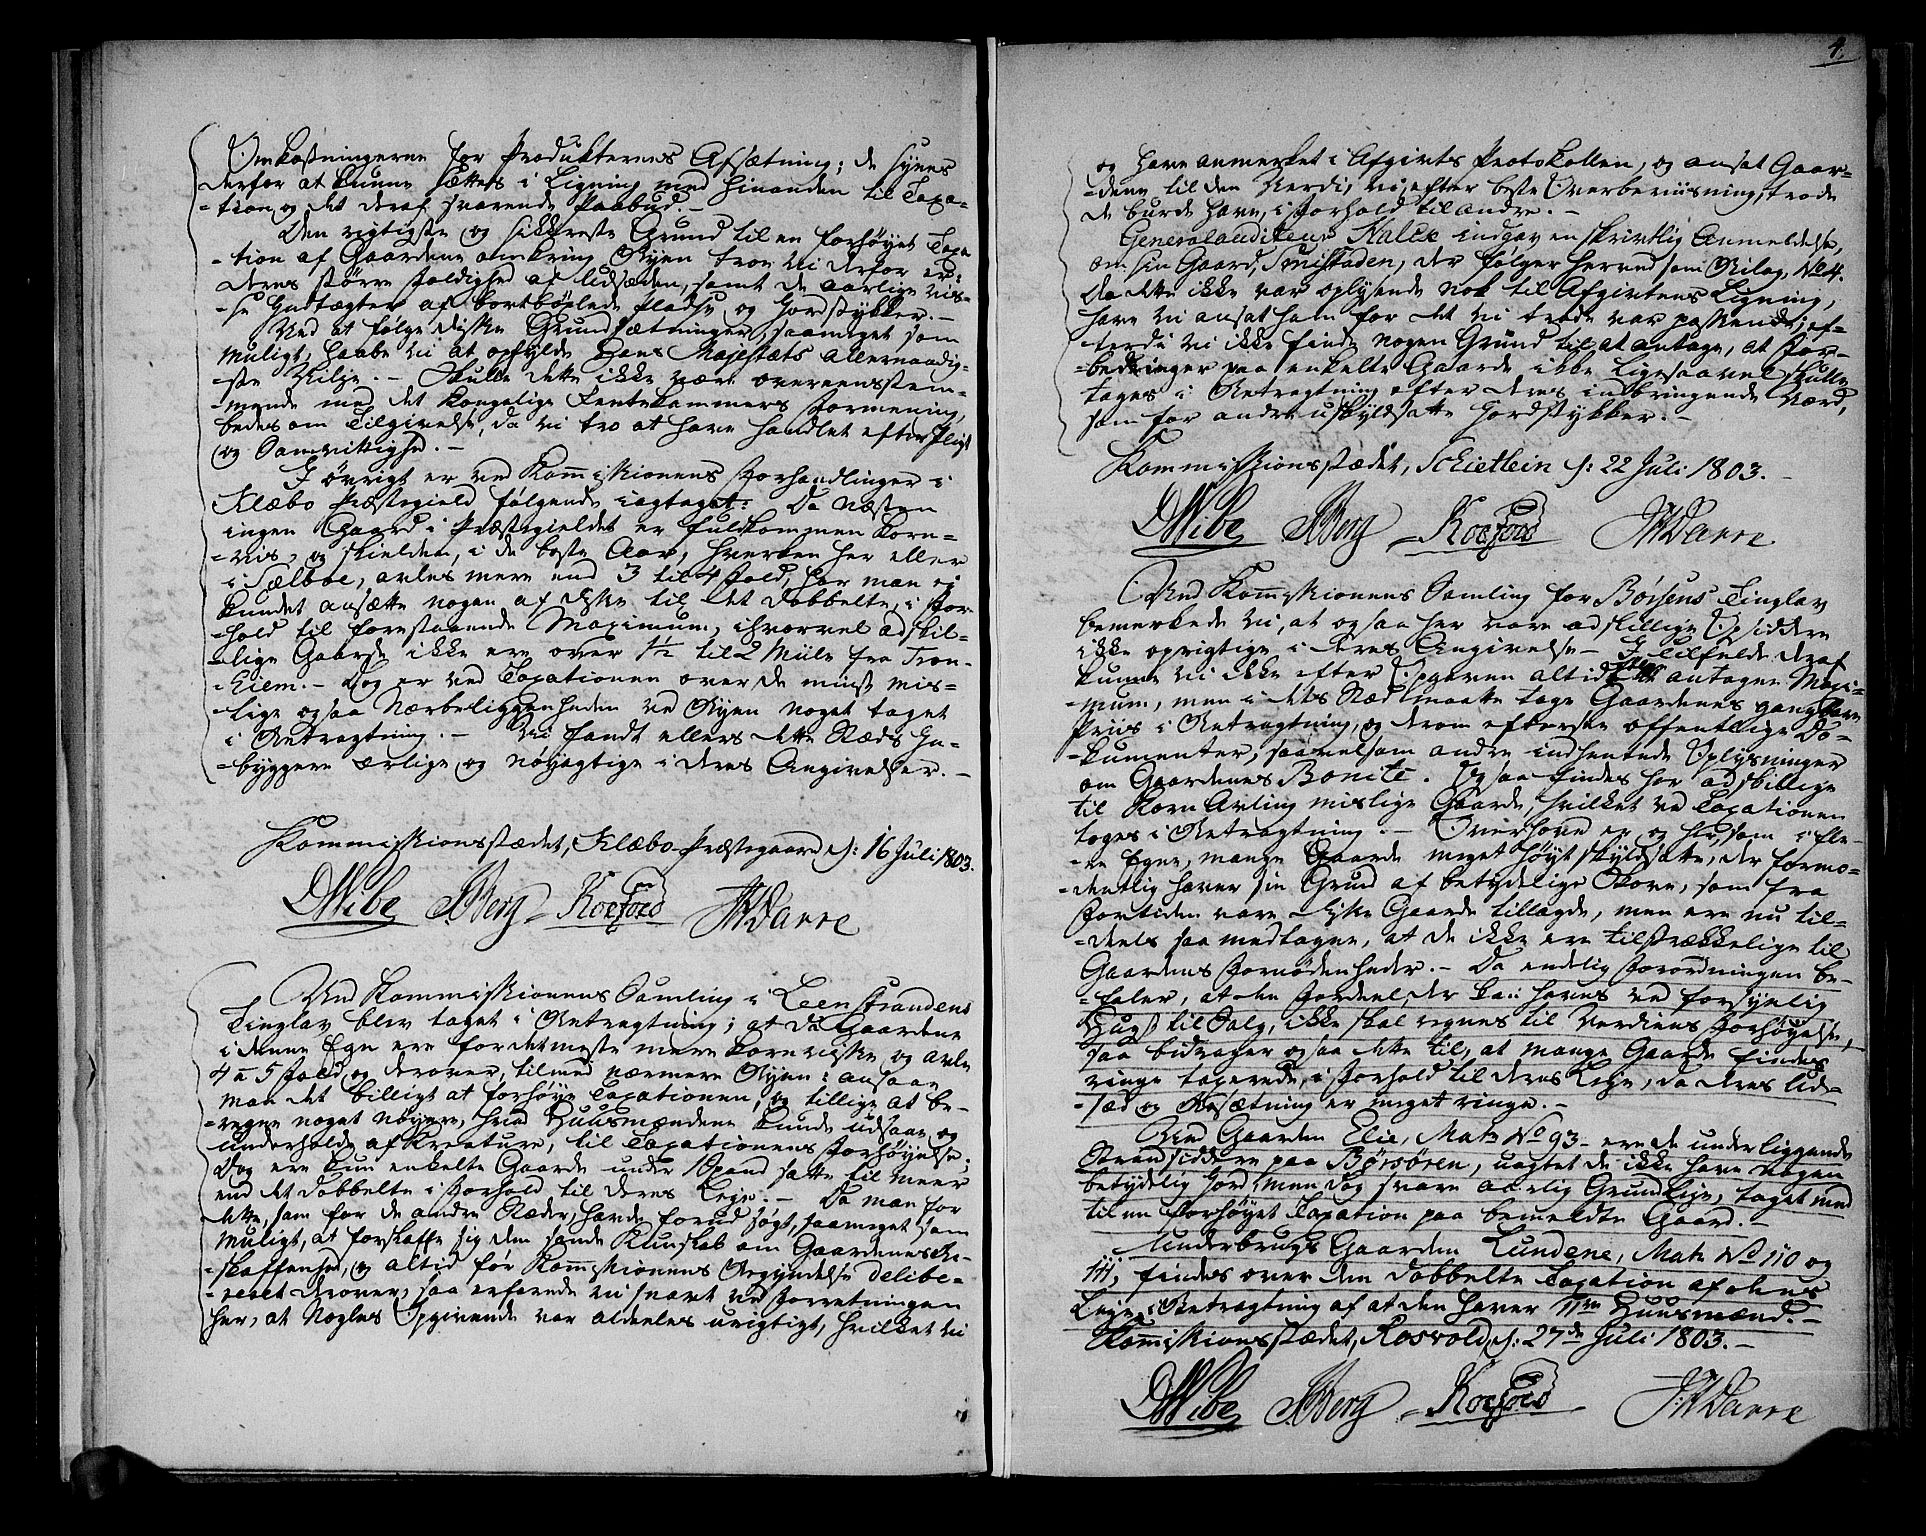 Omkostningerne for Produkternes Afsætning; de synes
derfor at kunne sættes i Ligning med hinanden til Taxa-
-tion og det deraf svarende Paabud. -
Den rigtigste og sikkreste Grund til en forhøyet Taxa
-tion af Gaardene omkring Byen troe vi derfor er:
deres større Foldighed af Udsæden, samt de aarlige vis-
-se Indtægter af bortbøxlede Pladse og Jordstykker. -
Ved at følge disse Grundsætninger, saameget som
muligt, haabe vi at opfylde Hans Majestæts allernaadig-
-ste Vilje. - Skulle dette ikke være overeensstem-
-mende med det kongelige Rentekammers Formening,
bedes om Tilgivelse, da vi tro at have handlet efter Pligt
og Samvittighed. -
I øvrigt er ved Kommissionens Forhandlinger i
Klæbo Præstegield følgende iagttaget: Da næsten
ingen Gaard i Præstegieldet er fuldkommen Korn-
-vis, og sielden, i de beste Aar, hverken her eller
i Sælboe, avles mere end 3 til 4 Fold, har man ei
kundet ansætte nogen af disse til det dobbelte, i For-
-hold til forestaaende Maximum, ihvorvel adskil-
-lige Gaarde ikke ere over 1½ til 2 Miile fra Tron-
-hiem. - Dog er ved Taxationen over de minst mis-
-lige ogsaa Nærbeliggenheden ved Byen noget taget
i Betragtning. - Vi fandt ellers dette Stæds In-
-byggere ærlige og nøyagtige i deres Angivelser. -
Kommissionsstædet, Klæbo Præstegaard d: 16 Juli 1803.
DWibe JBerg Koefoed JKDarre
Ved Kommissionens Samling i Leenstrandens
Tinglav blev taget i Betragtning; at da Gaardene
i denne Egn ere for det meste mere kornvisse, og avle
4 a 5 Fold, og derover, tilmed nærmere Byen: ansaae
man det billigt at forhøye Taxationen, og tillige at be-
-regne noget nøyere, hvad Huusmændene kunde udsaae og
underholde af Kreature, til Taxationens Forhøyelse;
Dog ere kun enkelte Gaarde under 1 Spand satte til meer
end det dobbelte i Forhold til deres Leje. - Da man for
dette, som for de andre Stæder, havde forud søgt, saameget som
muligt, at forskaffe sig den sande Kundskab om Gaardenes Be-
-skaffenhed, og altid før Kommissionens Begyndelse delibe-
-reret derover; saa erfarede vi snart ved Forretningen
her, at Nogles Opgivende var aldeles urigtigt, hvilket vi
4.
og have anmerket i Afgifts Protokollen, og ansat Gaar-
-dene til den Verdi, vi efter beste Overbeviisning, troede
de burde have, i Forhold til andre. -
Generalauditeur Kalee indgav en skriftlig Anmeldelse,
om sin Gaard, Smistaden, der følger herved som Bilag, No 4.
Da dette ikke var oplysende nok til Afgiftens Ligning,
have vi ansat ham for det vi troede var passende; ef-
-terdi vi ikke finde nogen Grund til at antage, at For-
-bedringer paa enkelte Gaarde ikke ligesaavel skulle
tages i Betragtning efter deres indbringende Værd,
som for andre uskyldsatte Jordstykker. -
Kommissionsstædet, Schietlein d: 22 Juli 1803. -
DWibe JBerg Koefoed JKDarre
Ved Kommissionens Samling for Børsens Tinglav
bemerkede vi, at ogsaa her vare adskillige Opsiddere
ikke oprigtige i deres Angivelse - I Tilfælde deraf
kunne vi ikke efter Opgaven altid antage Maxi-
-mum, men i dets Stæd maatte tage Gaardenes gangbare
Priis i Betragtning, og derom efterse offentlige Do-
-kumenter, saavelsom andre indhentede Oplysninger
om Gaardenes Bonité. Ogsaa findes her adskillige
til Korn Avling mislige Gaarde, hvilket ved Taxationen
toges i Betragtning. - Overhovedet er og her, som i fle-
-re Egne, mange Gaarde meget høyt skyldsatte, der formo-
-dentlig haver sin Grund af betydelige Skove, som fra
Fortiden vare disse Gaarde tillagde, men ere nu til-
-deels saa medtagne, at de ikke ere tilstrækkelige til
Gaardens Fornødenheder. - Da endelig Forordningen be-
-faler, at den Fordeel, der kan haves ved forsynlig
Hugst til Salg, ikke skal regnes til Verdiens Forhøyelse,
saa bidrager ogsaa dette til, at mange Gaarde findes
ringe taxerede, i Forhold til deres Leje, da deres Ud-
-sæd og Besætning er meget ringe. -
Ved Gaarden Elie, Matr No 93 - ere de underliggende
Strandsiddere paa Børsøren, uagtet de ikke have nogen
betydelig Jord, men dog svare aarlig Grundleje, taget med
til en forhøyet Taxation paa bemeldte Gaard. -
Underbrugs Gaarden Lundene, Matr No 110 og
111, findes over den dobbelte Taxation af dens
Leje, i Betragtning af at den haver 11ve Huusmænd. -
Kommissionsstædet, Rosvold, d: 27de Juli 1803. -
DWibe JBerg Koefoed JKDarre